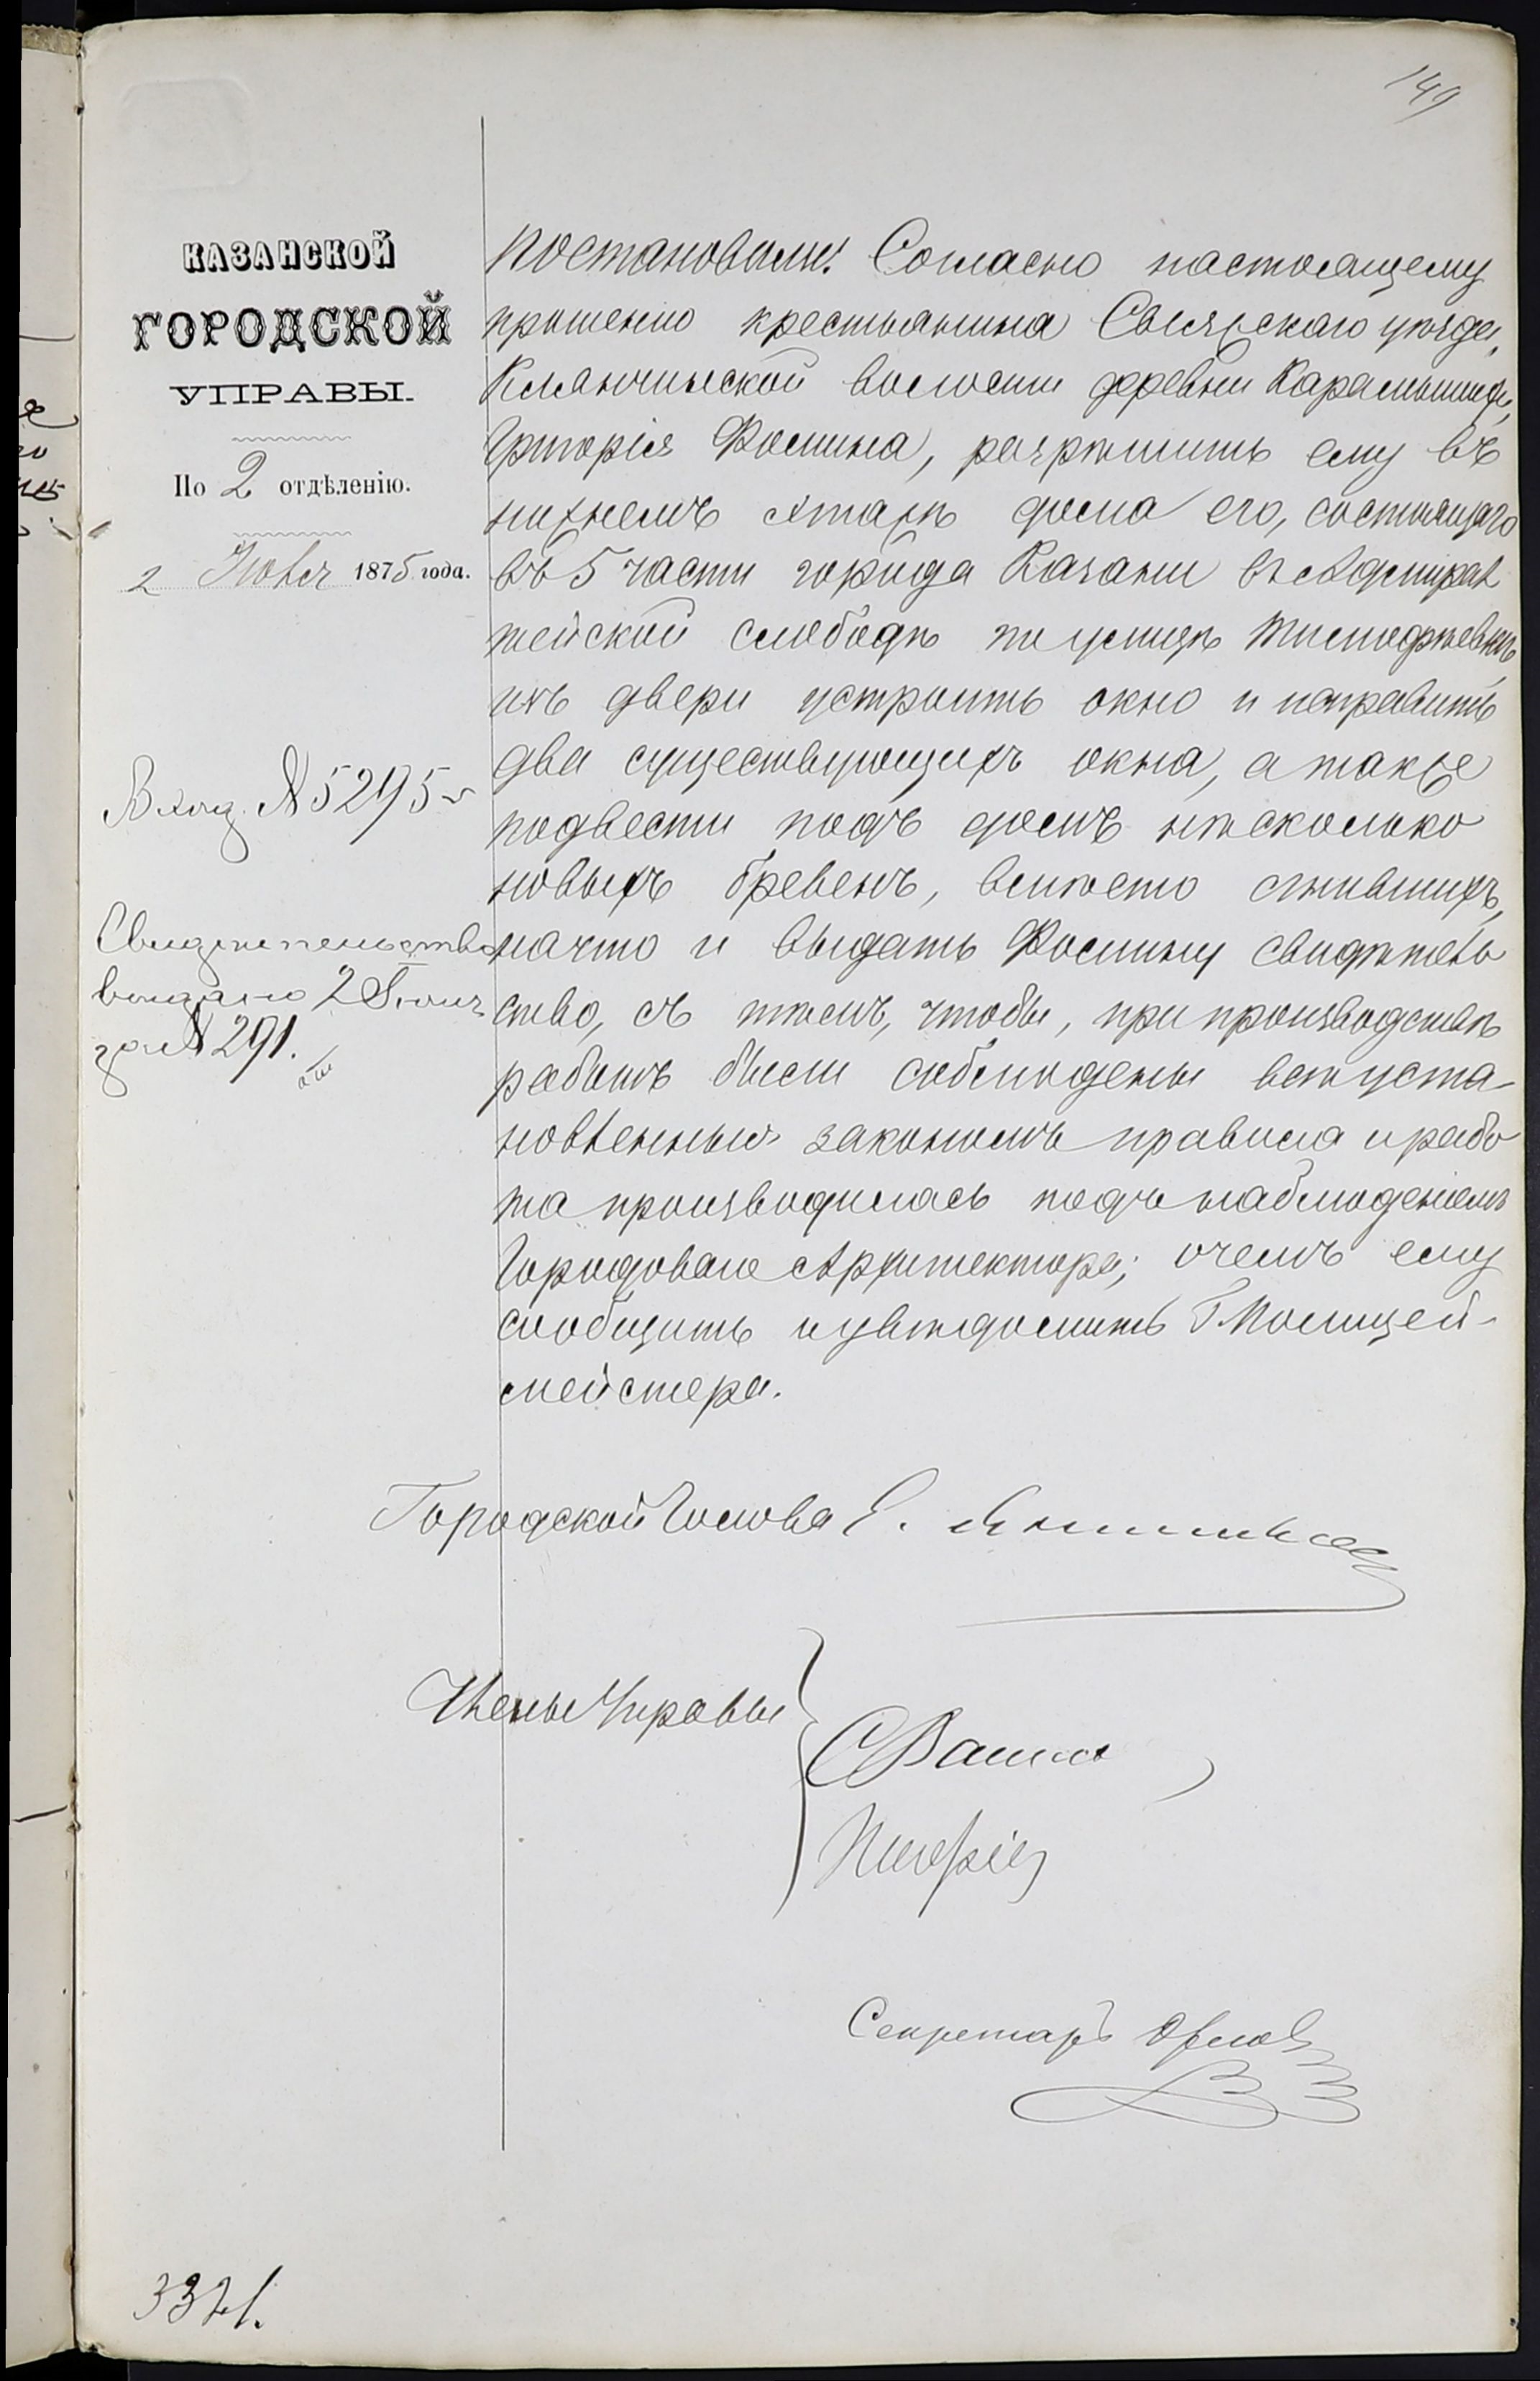 149
КАЗАНСКОЙ
ГОРОДСКОЙ
УПРАВЫ.
По 2 отдѣленію.
2 Іюня 1875 года.
Вход. № 5295
Свидѣтельство
выдано 2 Іюня
за № 291.
постановили: Согласно настоящему
прошенію крестьянина Свіяжскаго уѣзда,
Клянчинской волости деревни Карамышиха,
Григорія Фомина, разрѣшить ему въ
нижнемъ этажѣ дома его, состоящаго
въ 5 части города Казани въ Адмирал
тейской слободѣ по улицѣ
изъ двери устроить окно и исправить
два существующихъ окна, а также
подвести подъ домъ нѣсколько
новыхъ бревенъ, вмѣсто сгнившихъ,
на что и выдать Фомину свидѣтель
ство, съ тѣмъ, чтобы, при производствѣ
работъ были соблюдены всѣ уста-
новленныя закономъ правила и рабо
та производилась подъ наблюденіемъ
Городоваго Архитектора; о чемъ ему
сообщить и увѣдомить Г. Полицей-
мейстера.
Городской Голова Е.
Члены Управы
Секретарь Орлов
3321.